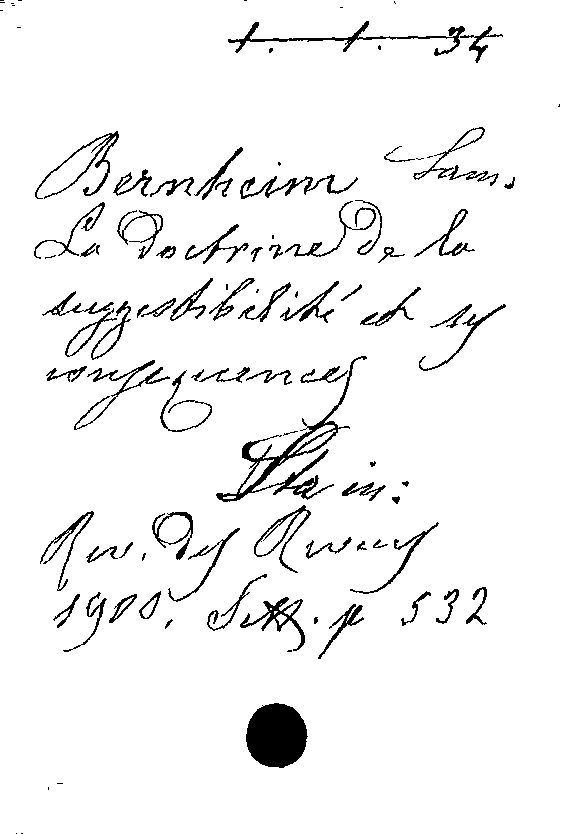 1. 1. 34
Bernheim Sam.
La doctrine de la
suggestibilité et ses
consequences
Sta in:
Rev. des Revues
1900. Sett. p 532